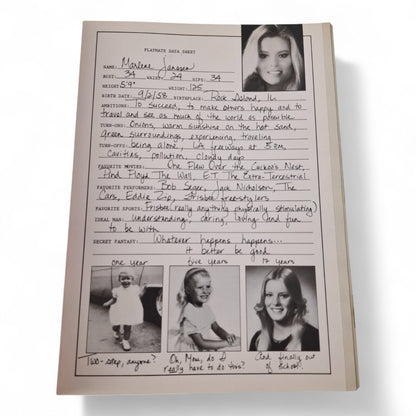 PLAYMATE DATA SHEET
NAME: Marlene Janssen
BUST: 34 WAIST: 24 HIPS: 34
HEIGHT: 5'9" WEIGHT: 125
BIRTH DATE: 9/2/58 BIRTHPLACE: Rock Island, IL
AMBITIONS: To succeed, to make others happy and to
travel and see as much of the world as possible
TURN-ONS: Onions, warm sunshine on the hot sand,
green surroundings, experiencing, traveling
TURN-OFFS: being alone, LA freeways at 5 pm,
cavities, pollution, cloudy days
FAVORITE MOVIES: One Flew Over the Cuckoo's Nest,
Pink Floyd The Wall, E.T. The Extra-Terrestrial
FAVORITE PERFORMERS: Bob Seger, Jack Nicholson, The
Cars, Eddie Zip, frisbee free-stylers
FAVORITE SPORTS: Frisbee (really anything physically stimulating)
IDEAL MAN: Understanding, caring, loving and fun
to be with
SECRET FANTASY: Whatever happens happens...
it better be good
one year five years 17 years
Two-step, anyone? Oh, Mom, do I And finally out
really have to do this? of school!